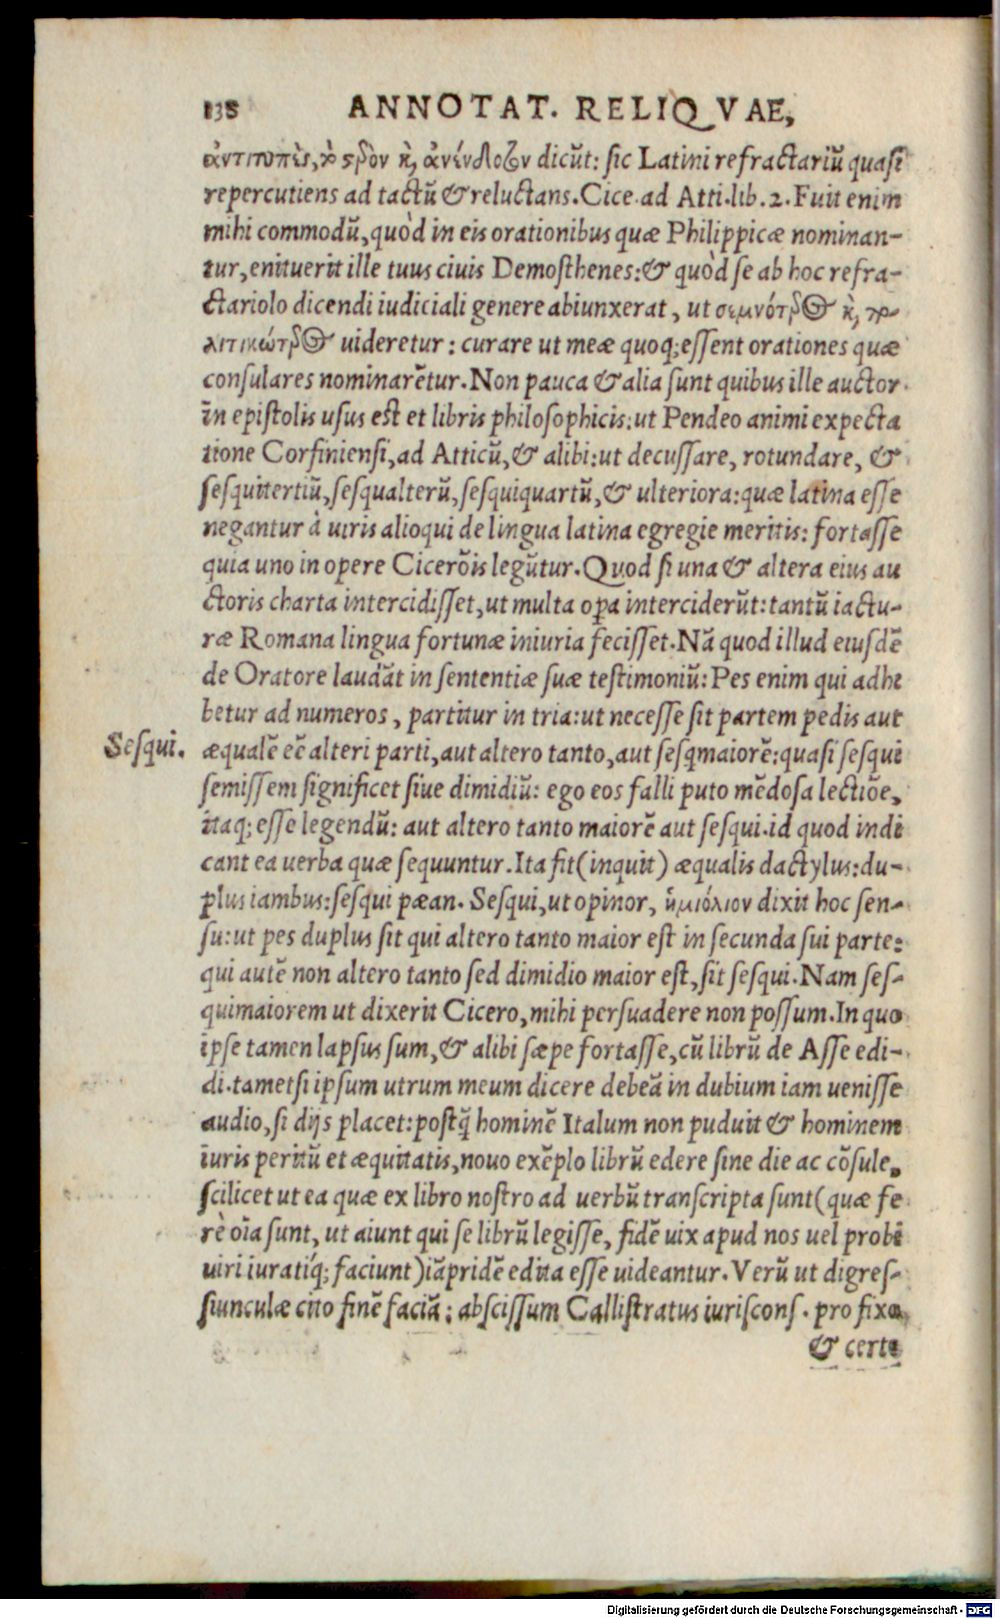 138 ANNOTAT. RELIQVAE,
dicūt: sic Latini refractariū quasi
repercutiens ad tactū & reluctans. Cice. ad Atti. lib. 2. Fuit enim
mihi commodū, quòd in eis orationibus quæ Philippicæ nominan-
tur, enituerit ille tuus ciuis Demosthenes: & quòd se ab hoc refra-
ctariolo dicendi iudiciali genere abiunxerat, ut σεμνότερος κ, πο-
λιτικώτερος uideretur: curare ut meæ quoq; essent orationes quæ
consulares nominarētur. Non pauca & alia sunt quibus ille auctor
in epistolis usus est et libris philosophicis: ut Pendeo animi expecta
tione Corfiniensi, ad Atticū, & alibi: ut decussare, rotundare, &
sesquitertiū, sesqualterū, sesquiquartū, & ulteriora: quæ latina esse
negantur à uiris alioqui de lingua latina egregie meritis: fortasse
quia uno in opere Cicerōis legūtur. Quod si una & altera eius au
ctoris charta intercidisset, ut multa opa interciderūt: tantū iactu-
ræ Romana lingua fortunæ iniuria fecisset. Nā quod illud eiusdē
de Oratore laudāt in sententiæ suæ testimoniū: Pes enim qui adhi
betur ad numeros, partitur in tria: ut necesse sit partem pedis aut
Sesqui. æqualē eē alteri parti, aut altero tanto, aut sesqmaiorē: quasi sesqui
semissem significet siue dimidiū: ego eos falli puto mēdosa lectiōe,
itaq; esse legendū: aut altero tanto maiorē aut sesqui. id quod indi
cant ea uerba quæ sequuntur. Ita fit (inquit) æqualis dactylus: du-
plus iambus: sesqui pæan. Sesqui, ut opinor, ἡμιόλιον dixit hoc sen-
su: ut pes duplus sit qui altero tanto maior est in secunda sui parte:
qui autē non altero tanto sed dimidio maior est, sit sesqui. Nam ses-
quimaiorem ut dixerit Cicero, mihi persuadere non possum. In quo
ipse tamen lapsus sum, & alibi sæpe fortasse, cū librū de Asse edi-
di. tametsi ipsum utrum meum dicere debeā in dubium iam uenisse
audio, si dijs placet: postq̄ hominē Italum non puduit & hominem
iuris peritū et æquitatis, nouo exēplo librū edere sine die ac cōsule,
scilicet ut ea quæ ex libro nostro ad uerbū transcripta sunt (quæ fe
rè oīa sunt, ut aiunt qui se librū legisse, fidē uix apud nos uel probi
uiri iuratíq; faciunt) iāpridē edita esse uideantur. Verū ut digres-
siunculæ cito finē faciā: abscissum Callistratus iuriscons. pro fixo
& certe